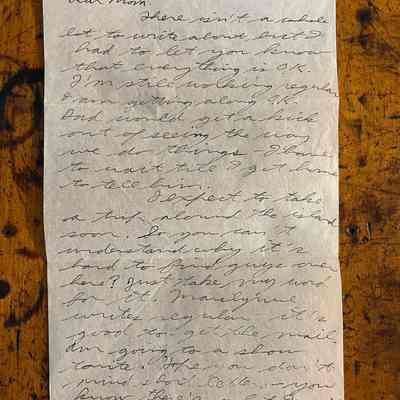 Dear Mom
There isn't a whole
lot to write about but I
had to let you know
that everything is O.K.
I'm still working regular
& am getting along O.K.
Dad would get a kick
out of seeing the way
we do things - I have
to wait till I get home
to tell him.
I expect to take
a trip around the island
soon. Do you can't
understand why it's
hard to find guys over
here? Just take my word
for it. Marilynne
writes regular it's
good to get the mail
Am going to a show
tonite. Hope you don't
mind short letters - you
know there's